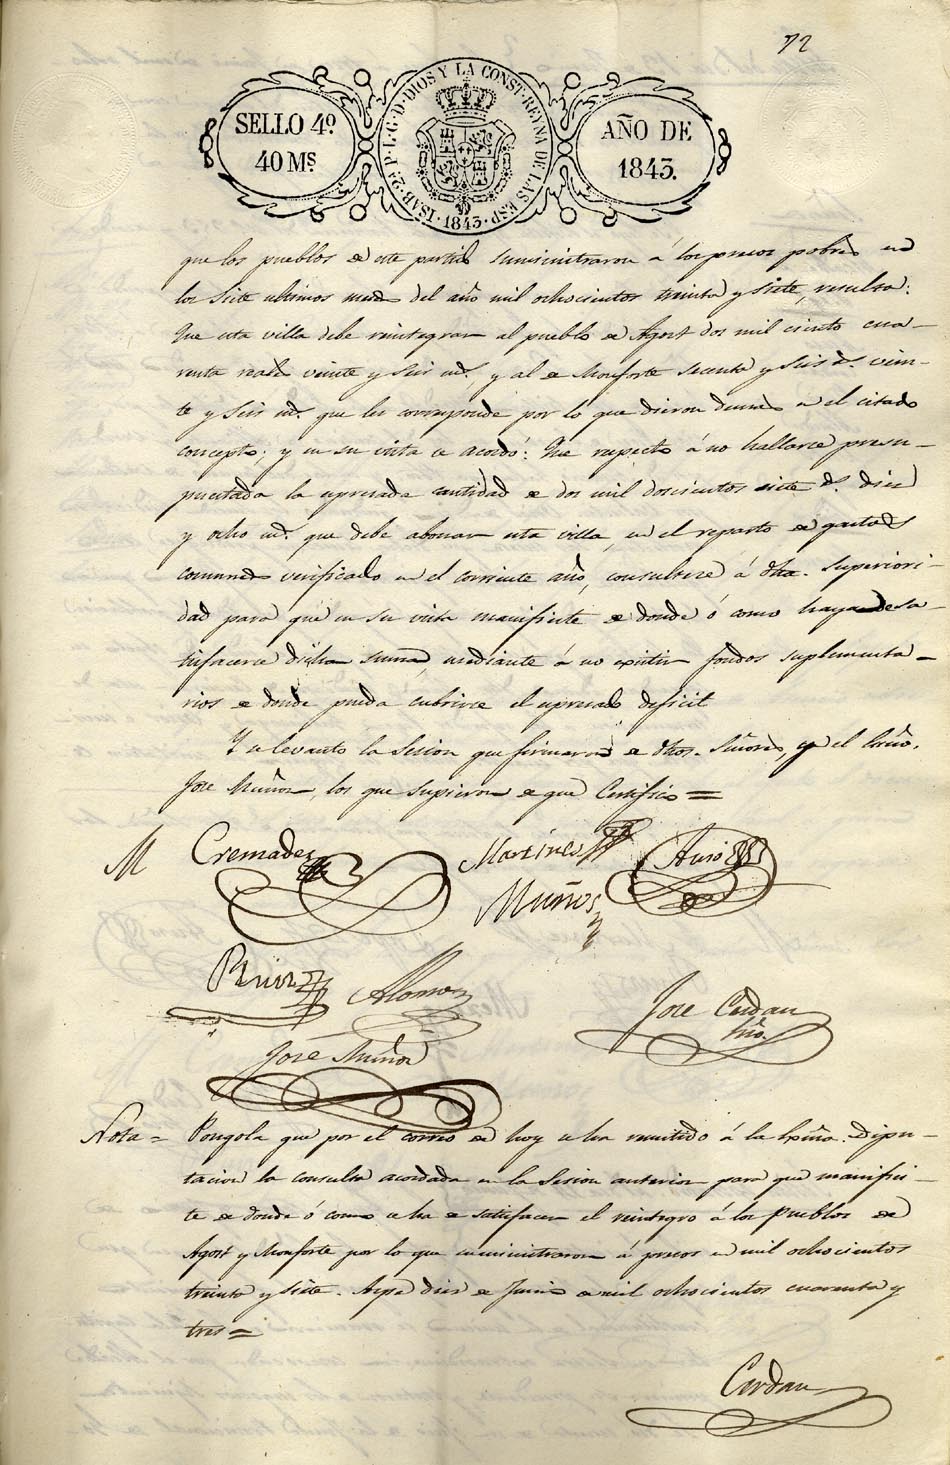 72
SELLO 4º
40 Ms.
ISAB. 2ª P. L. G. D. DIOS Y LA CONST. REYNA DE LAS ESP. 1843
AÑO DE
1843.
que los pueblos de este partido suministraron á los presos pobres en
los siete ultimos meses del año mil ochocientos treinta y siete, resulta:
Que esta villa debe reintegrar al pueblo de Agost dos mil ciento cua-
renta reales veinte y seis ms., y al de Monforte sesenta y seis rs. vein-
te y seis ms. que les corresponde por lo que dieron demas en el citado
concepto; y en su vista se acordó: Que respecto á no hallarse presu-
puestada la espresada cantidad de dos mil doscientos siete rs. diez
y ocho ms. que debe abonar esta villa, en el reparto de gastos
comunes verificado en el corriente año, consultese á dha. Superiori-
dad para que en su vista manifieste de donde ó como haya de sa-
tisfacerse dicha suma, mediante á no existir fondos suplementa-
rios de donde pueda cubrirse el espresado deficit
Y se levanto la Sesion que firmaron de dhos. Señores, y el
Jose Muñoz, los que supieron de que Certifico =
M Cremades Martines Asnso
Muños
Ruiz Alonso
Jose Cerdan
Srio.
Jose Muñoz
Nota = Pongola que por el correo de hoy se ha remitido á la Exma. Dipu-
tacion la consulta acordada en la Sesion anterior para que manifies-
te de donde ó como se ha de satisfacer el reintegro á los Pueblos de
Agost y Monforte por lo que suministraron á presos en mil ochocientos
treinta y siete. Aspe diez de Junio de mil ochocientos cuarenta y
tres =
Cerdan